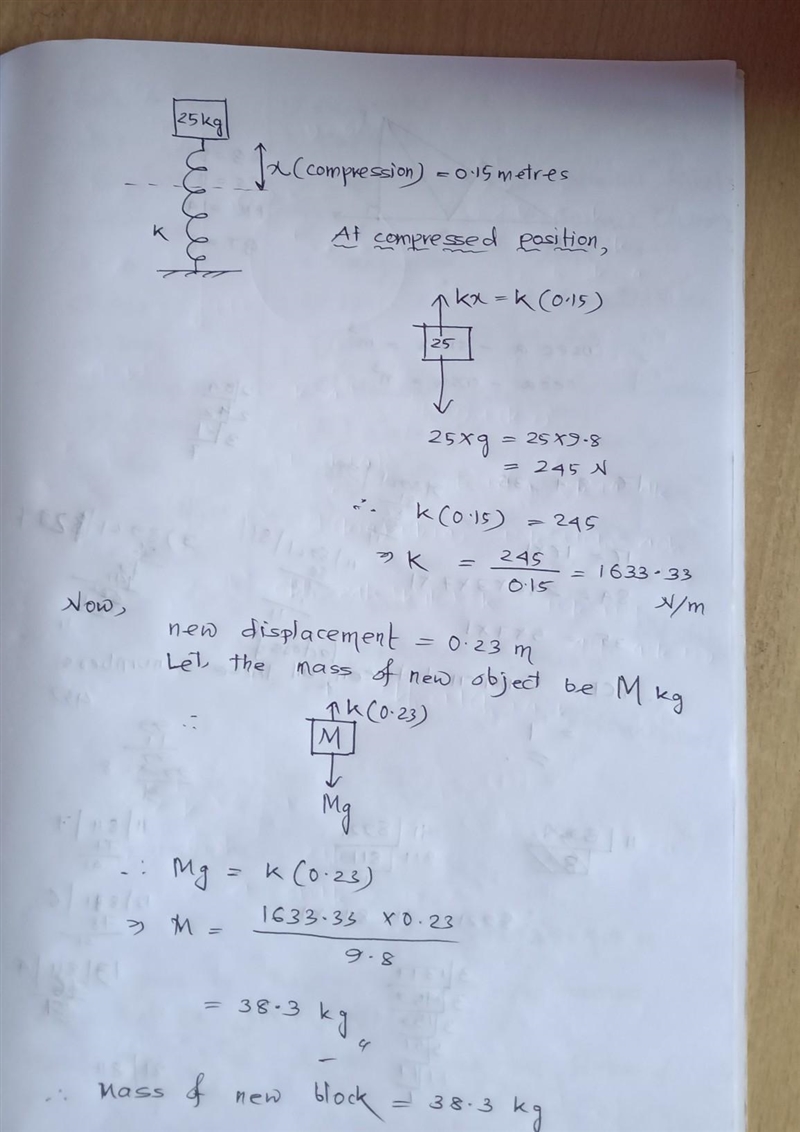 25kg
x (compression) = 0.15 metres
K
At compressed position,
kx = k (0.15)
25
25xg = 25x9.8
= 245 N
∴ k(0.15) = 245
⇒ K = 245/0.15 = 1633.33 N/m
Now,
new displacement = 0.23 m
Let the mass of new object be M kg
∴ k(0.23)
M
Mg
∴ Mg = k (0.23)
⇒ M = 1633.33 x 0.23 / 9.8
= 38.3 kg
∴ Mass of new block = 38.3 kg